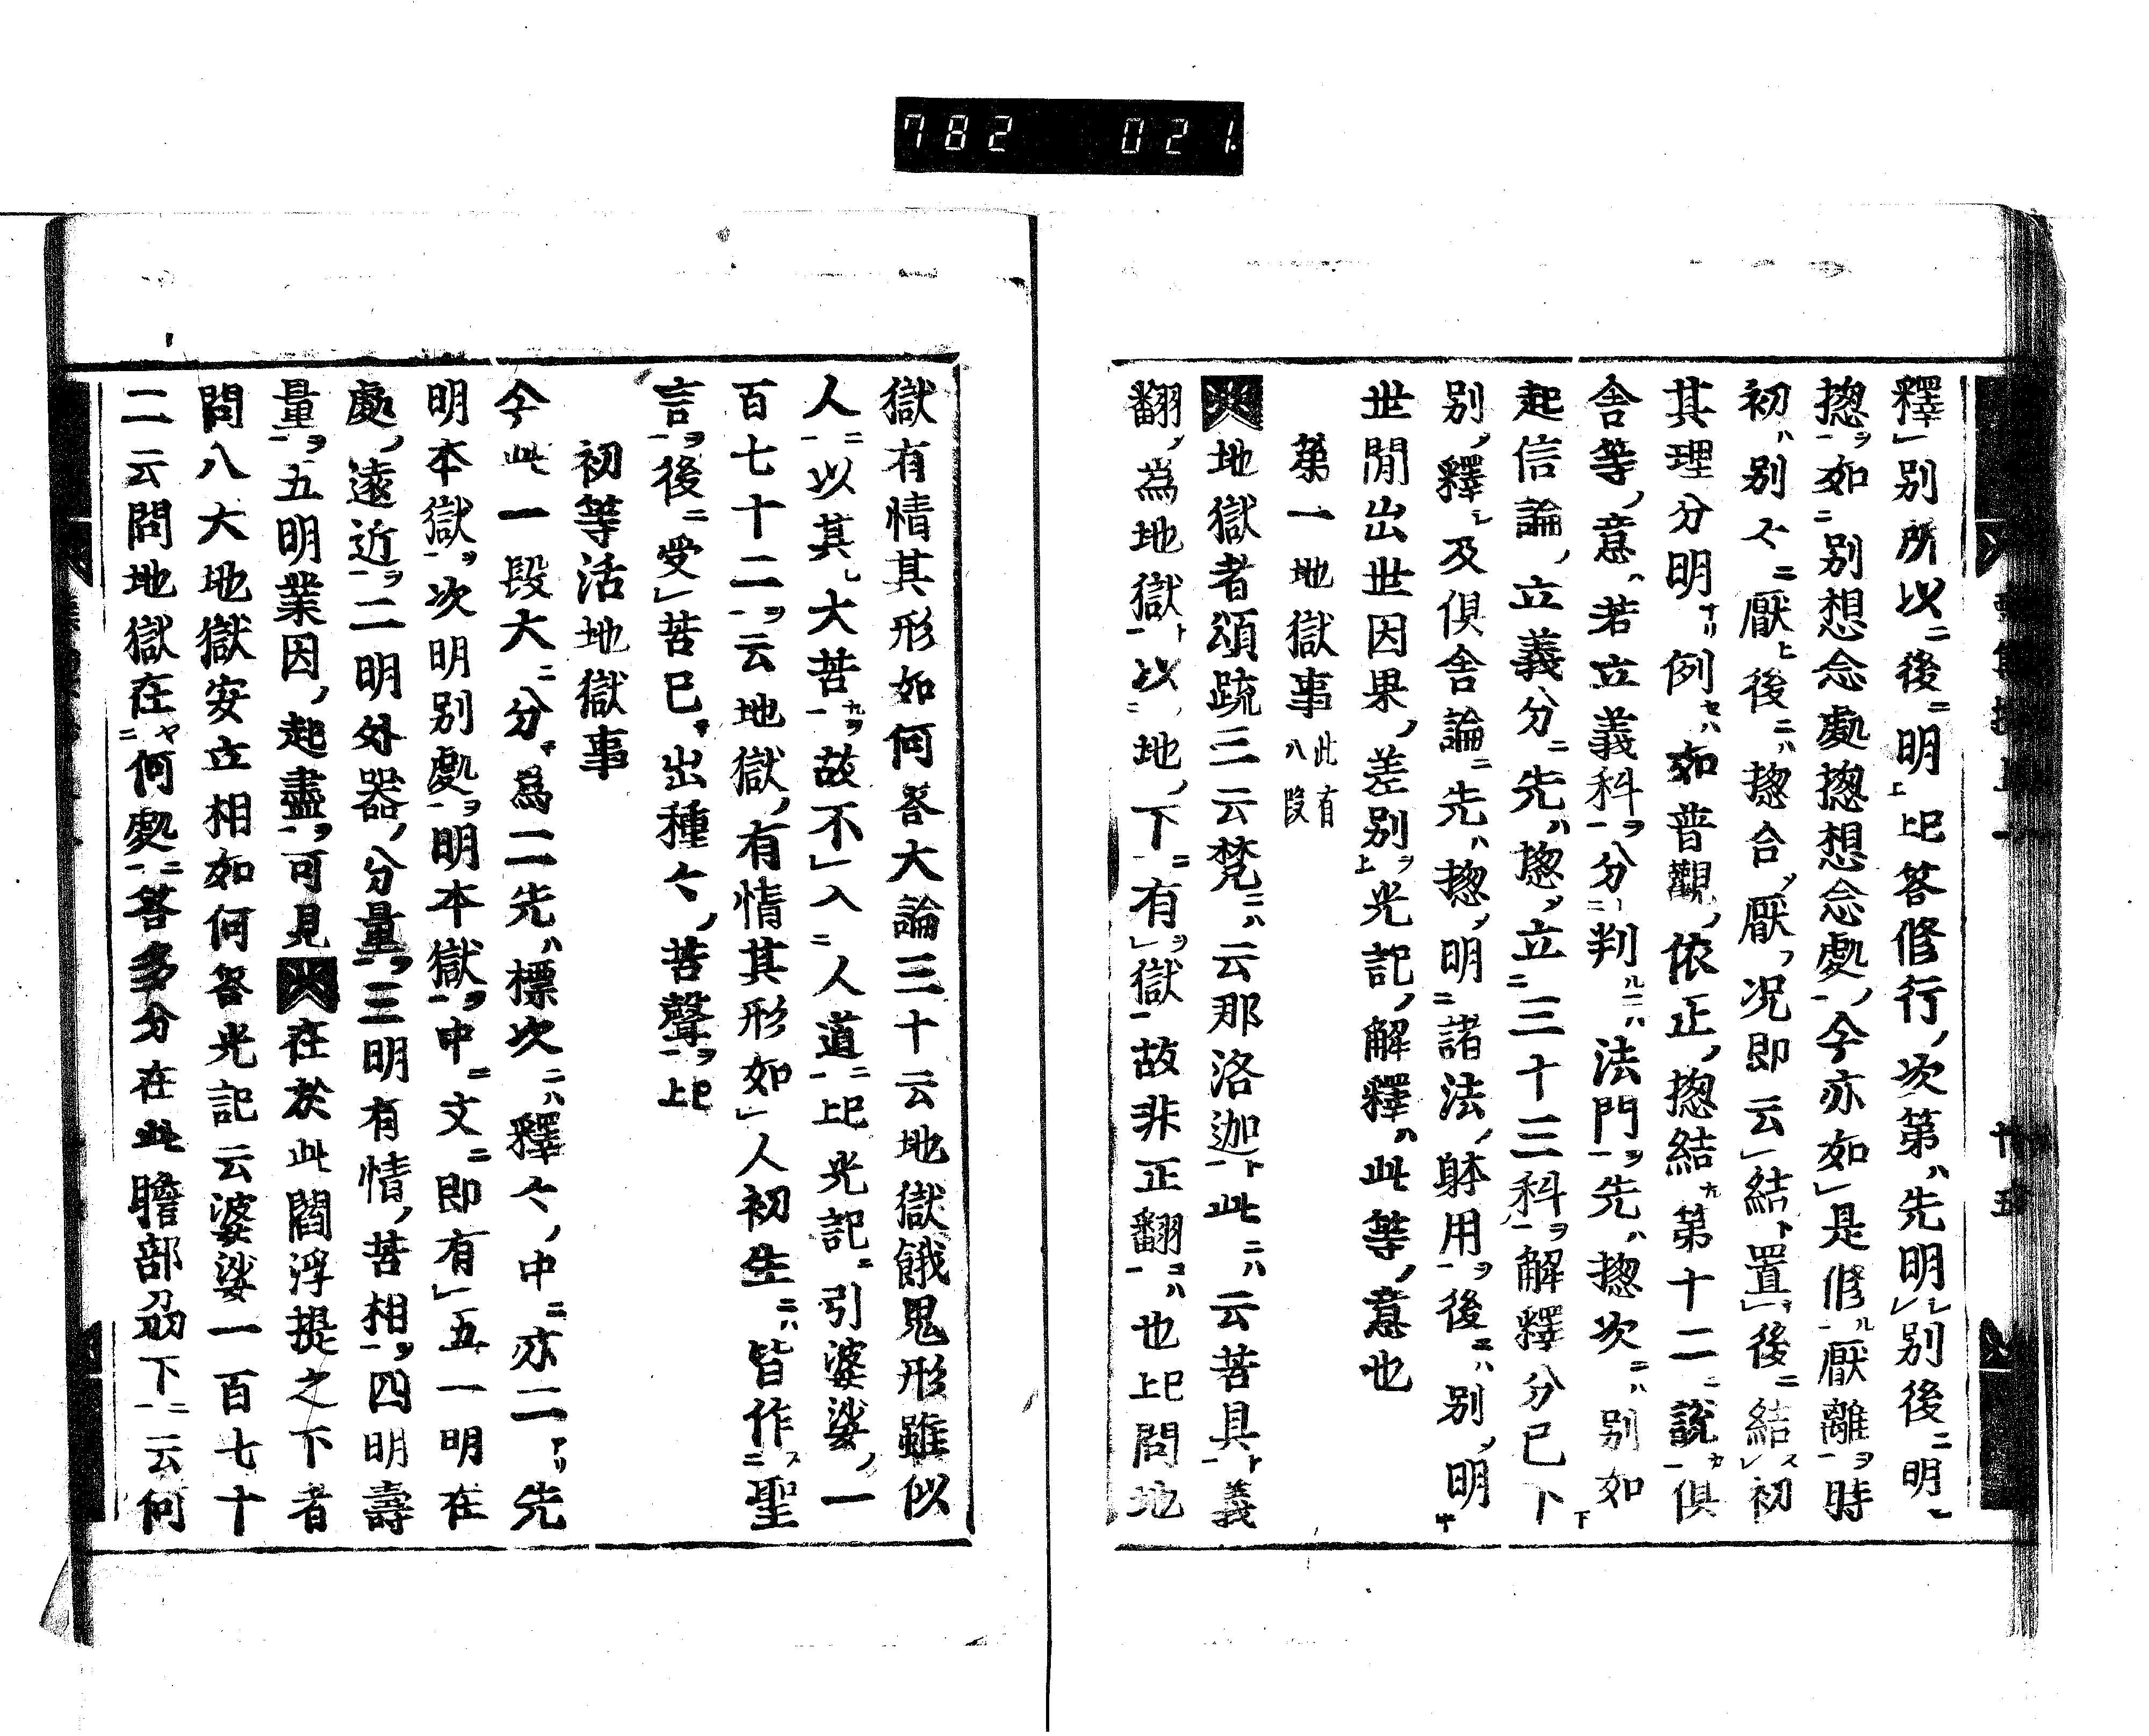 782 021.
釋別所以後明上已答修行次第先明別後明
揔如別想念處揔想念處今亦如是修厭離時
初別々厭上後揔合厭況即云結置後結初
其理分明例如普觀依正揔結第十二說俱
舍等意若立義科分判法門先揔次別如
起信論立義分先揔立三十三科解釋分已下
別釋及俱舍論先揔明諸法躰用後別明
世間出世因果差別上光記解釋此等意也
第一地獄事此有八段
地獄者頌疏三云梵云那洛迦此云苦具義
翻為地獄以地下有獄故非正翻也上已問地
獄有情其形如何答大論三十云地獄餓鬼形雖似
人以其大苦故不入人道上已光記引婆娑一
百七十二云地獄有情其形如人初生皆作聖
言後受苦已出種々苦聲上已
初等活地獄事
今此一段大分為二先標次釋々中亦二先
明本獄次明別處明本獄中文即有五一明在
處遠近二明外器分量三明有情苦相四明壽
量五明業因起盡可見在於此閻浮提之下者
問八大地獄安立相如何答光記云婆娑一百七十
二云問地獄在何處答多分在此贍部洲下云何